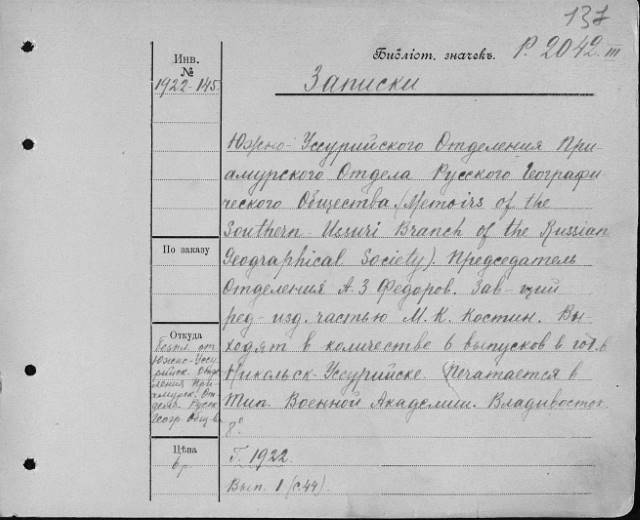 137
Библіот. значекъ. P. 2042 III
Записки
Инв.
№
1922-145
Южно-Уссурийского Отделения При-
амурского Отдела Русского Географи-
ческого Общества (Memoirs of the
Southern-Ussuri Branch of the Russian
Geographical Society). Председатель
Отделения А. З. Федоров. Зав-щий
ред-изд. частью М. К. Костин. Вы-
ходят в количестве 6 выпусков в год в
Никольск-Уссурийске. Печатается в
Тип. Военной Академии. Владивосток
8°
Г. 1922.
Вып. 1 (с. 44).
По заказу
Откуда
от
Южно-Уссу-
рийск. Отде-
ления При-
амурск. От-
дела Русск.
Геогр. Общ-ва
Цѣна